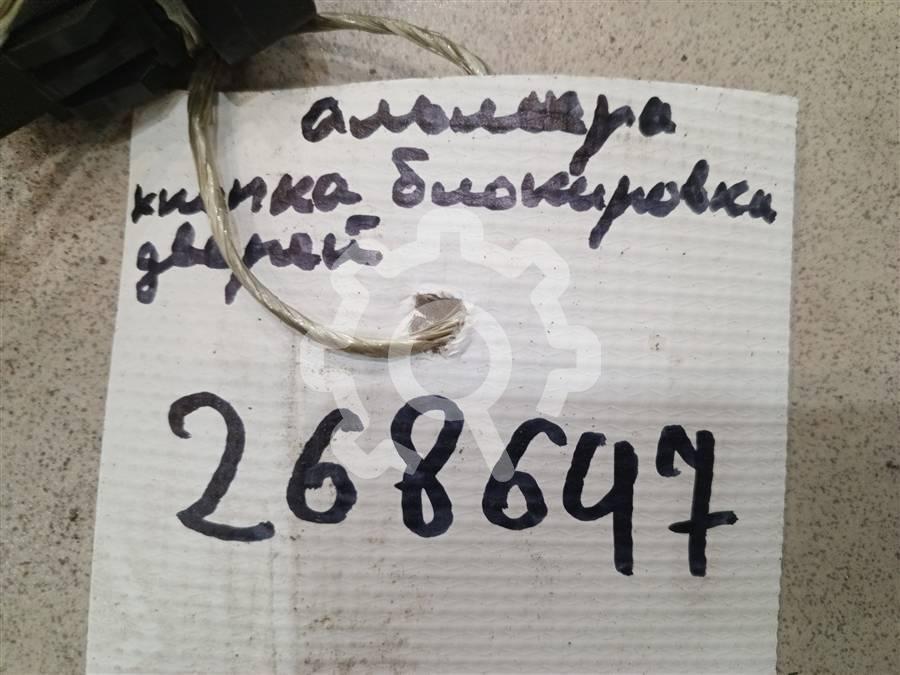 альмера
кнопка блокировки
дверей
268647